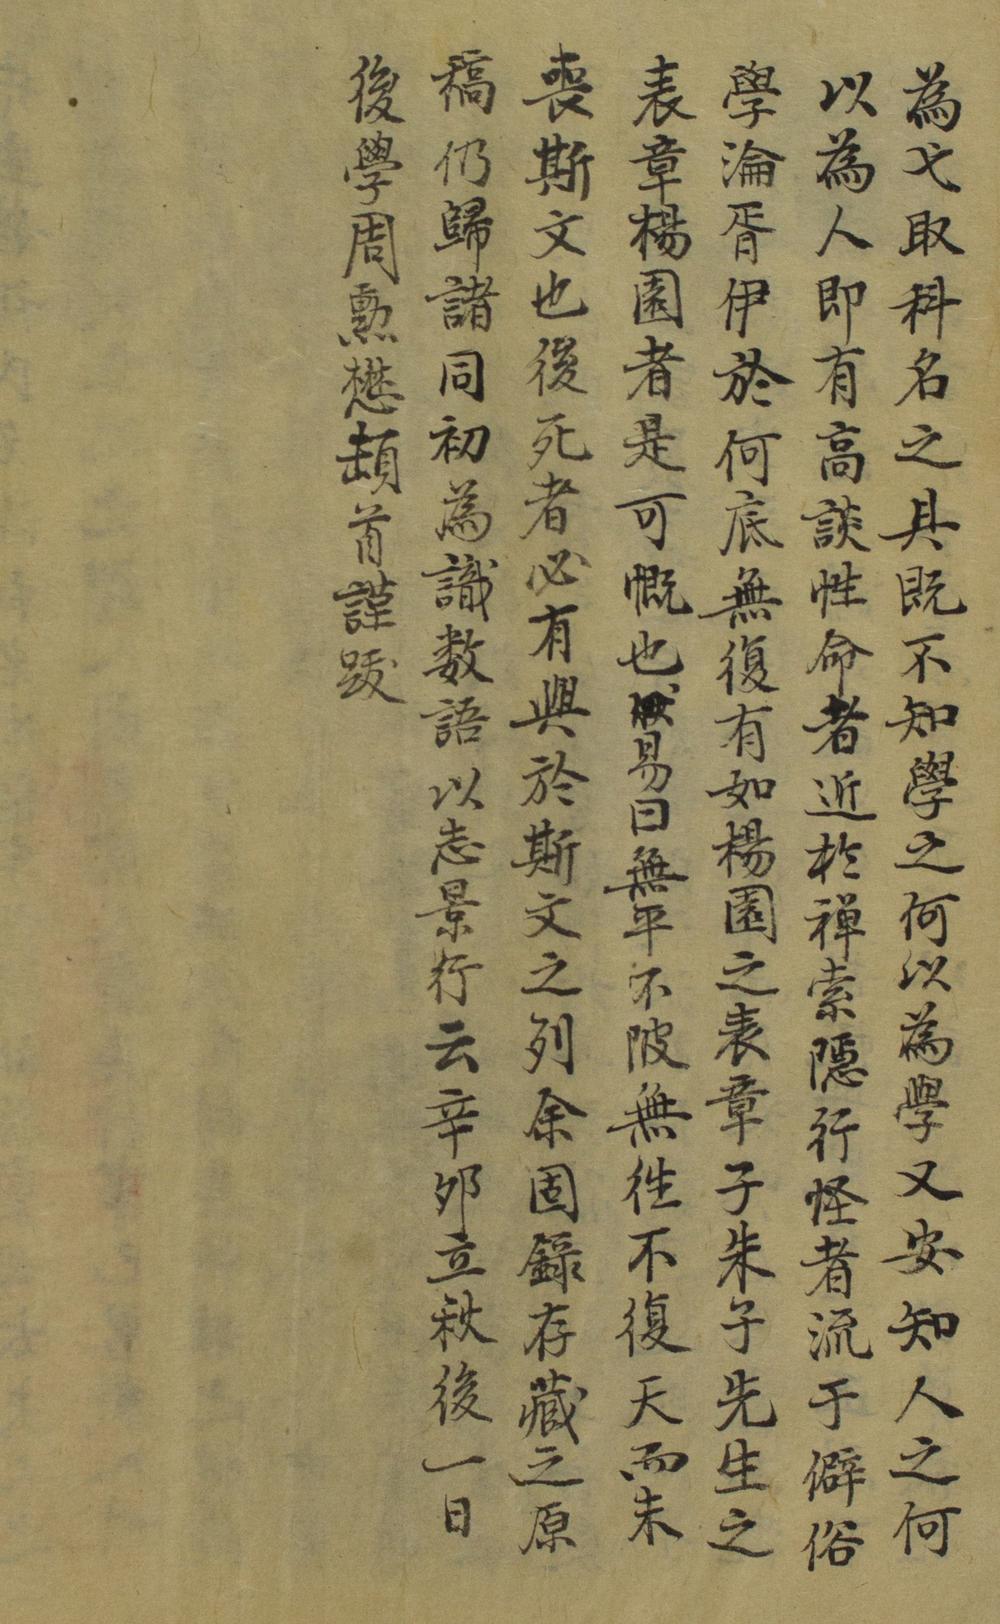 為弋取科名之具既不知學之何以為學又安知人之何
以為人即有高談性命者近於禅索隱行怪者流于僻俗
學淪胥伊於何底無復有如楊園之表章子朱子先生之
表章楊園者是可慨也易曰無平不陂無往不復天而未
喪斯文也後死者必有與於斯文之列余固錄存藏之原
稿仍歸諸同初為識数語以志景行云辛夘立秋後一日
後學周勲懋頓首謹跋